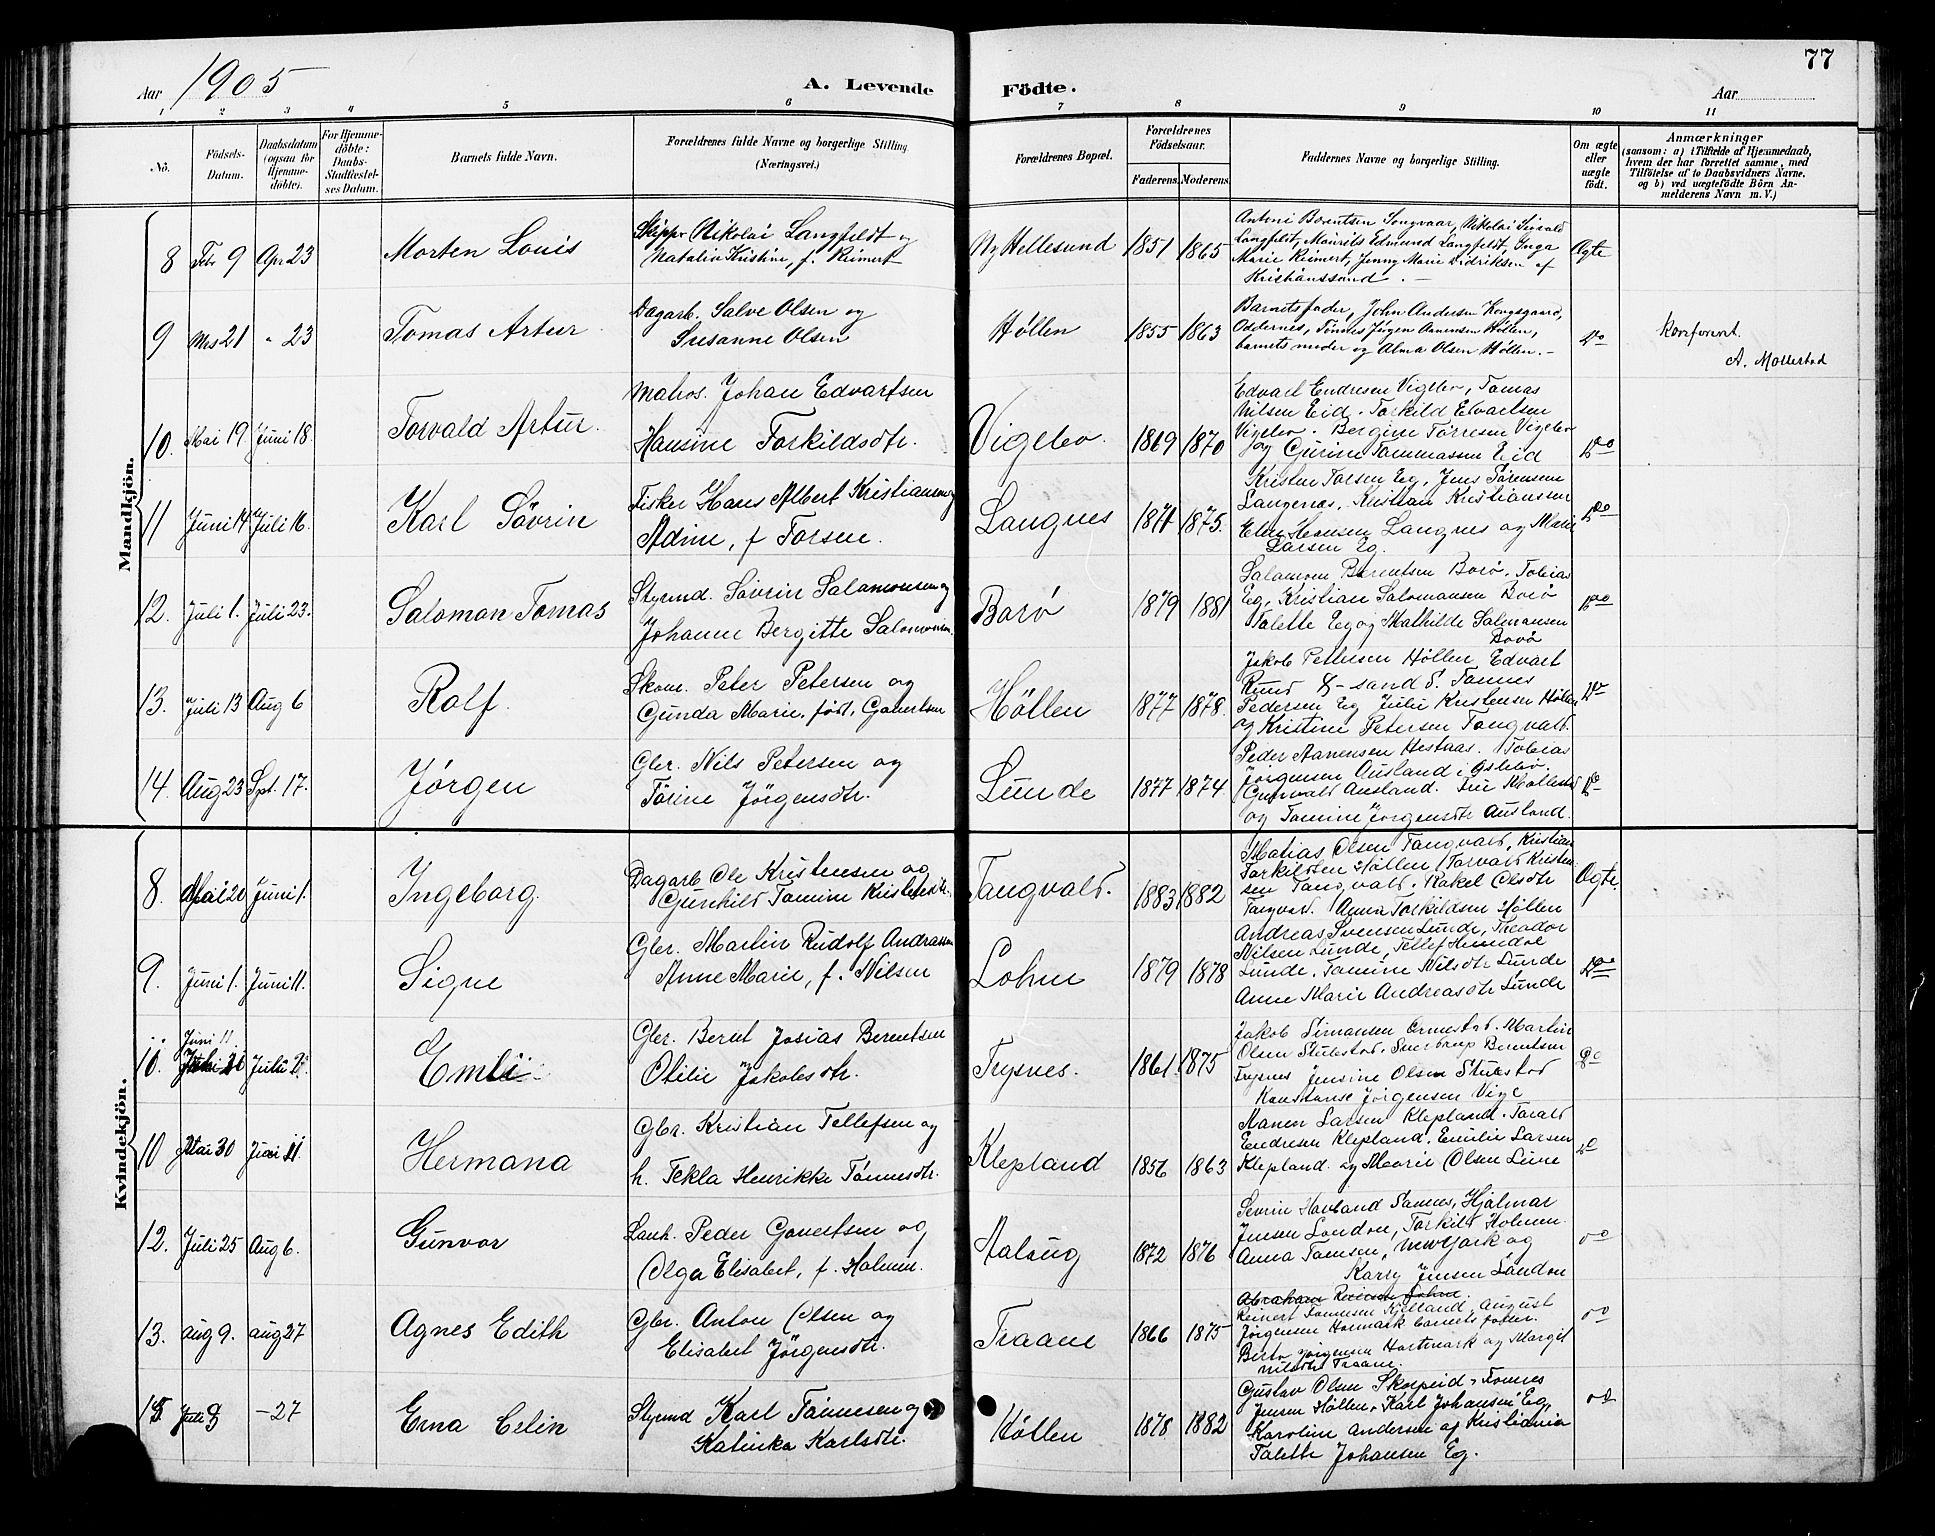 77
Aar 1905
A. Levende Födte.
Aar
1 2 3 4 5 6 7 8 9 10 11
No.
Födsels-Datum.
Daabsdatum (ogsaa for Hjemme-döbte).
For Hjemme-döbte: Daabs-Stadfæstel-ses Datum.
Barnets fulde Navn.
Forældrenes fulde Navne og borgerlige Stilling (Næringsvei.)
Forældrenes Bopæl.
Forældrenes Födselsaar.
Faderens. Moderens.
Faddernes Navne og borgerlige Stilling.
Om ægte eller uægte født.
Anmærkninger
(saasom: a) i Tilfælde af Hjemmedaab,
hvem der har forrettet samme, med
Tilföielse af to Daabsvidners Navne,
og b) ved uægtefödte Börn An-
melderens Navn m. V.)
Mandkjön.
8 Feb 9 Apr 23
Morten Louis
Skippr Nikolai Langfeldt og
Natalia Kristine, f. Reimert
Ny Hellesund 1851 1865
Antoni Berentsen Songvaar, Nikolai Sigvald
Langfeldt, Maurits Edmund Langfeldt, Inga
Marie Reimert, Jenny Marie Didriksen af
Kristianssand. —
Ægte
9 Mrs 21 " 23
Tomas Artur
Dagarb. Salve Olsen og
Susanne Olsen
Høllen 1855 1863
Barnets fader, John Andersen Kongsgaard,
Oddernes, Tønnes Jørgen Aanensen Høllen,
barnets moder og Alma Olsen Høllen. —
Do
Konfereret.
A. Mollestad
10. Mai 19. Juni 18.
Torvald Artur.
Matros. Johan Edvartsen
Hansine Torkildsdtr.
Vigebo. 1869 1870
Edvart Endresen Vigebo, Tomas
Nilsen Eid. Torkild Edvartsen
Vigebo. Bergine Tørresen Vigebo
og Gurine Tommassen Eid
Do
11 Juni 14 Juli 16.
Karl Sövrin
Fisker Hans Albert Kristiansen og
Adine, f Torsen.
Langnes 1871 1875.
Kristen Torsen Eg, Jens Sørensen
Langenes, Kristian Kristianssen
Ellen Hansen Langnes og Marie
Larsen Eg.
Do
12. Juli 1. Juli 23.
Salomon Tomas
Styrmd. Sövrin Salamonsen og
Johanne Bergitte Salomonsen.
Borø 1879 1881
Salamon Berentsen Borø. Tobias
Eg, Kristian Salomansen Borø
Talette Eg og Mathilde Salmansen
Borö
Do
13. Juli 13 Aug 6
Rolf.
Skom. Peter Petersen og
Gunda Marie, født, Govertsen
Höllen 1877 1878.
Jakob Pettersen Höllen Edvart
Rund K-sand S. Tønnes
Pedersen Eg Julie Kristensen Höllen
og Kristine Petersen Tangvald.
Do
14. Aug 23 Spt. 17.
Jörgen
Gbr. Nils Petersen og
Torine Jörgensdtr.
Lunde 1877 1874.
Peder Aanensen Hestaas. Tobias
Jörgensen Ausland i Oslebo.
Gunvald Ausland. Frue Mollestad
og Tomine Jörgensdtr Ausland.
Do
Kvindekjön.
8. Mai 20 Juni 1.
Ingeborg.
Dagarb Ole Kristensen og
Gunhild Tomine Kristensdtr.
Tangvald. 1883 1882
Matias Olsen Tangvald, Kristian
Torkildsen Höllen, Torvald Kristen-
sen Tangvald. Rakel Olsdtr
Tangvald. Anna Torkildsen Höllen
Ægte.
9. Juni 1. Juni 11.
Signe
Gbr. Martin Rudolf Andrassen
Anne Marie, f. Nilsen
Lohne 1879 1878
Andreas Svensen Lunde, Theador
Nilsen Lunde, Tellef Hunsdol
Lunde. Tomine Nilsdtr Lunde
Anne Marie Andreasdtr Lunde
Do
Juni 11.
Emli
Gbr. Bernt Josias Berentsen
Otilie Jakobsdtr.
Trysnes. 1861. 1875
Jakob Simonsen Ormestad. Martin
Olsen Stubstad. Berentsen
Trysnes Jensine Olsen Stubstad
Konstanse Jørgensen Vige
Do
10 Mai 30 Juni 11
Hermana
Gbr. Kristian Tellefsen og
h. Tekla Henrikke Tönnesdtr.
Klepland 1856 1863
Aanen Larsen Klepland. Torald
Endresen Klepland, Emilie Larsen
Klepland. og Marie Olsen Lune
Do
12. Juli 25 Aug 6.
Gunvor
Lauh. Peder Govertsen og
Olga Elisabet, f. Holmen.
Aalaug 1872 1876
Sevrin Havland Sannes, Hjalmar
Jensen London, Torkild Holmen.
Anna Tomsen, New York og
Karry Jensen London
Do
13. aug 9. aug 27
Agnes Edith
Gbr. Anton Olsen og
Elisabet Jörgensdtr.
Traane 1866 1875
Reinert Tønnesen Kjelland, August
Jørgensen Hortmark barnets fader.
Berta Jørgensen Hortmark og Margit
Nilsdtr Traane.
Do
15 Juli 8 - 27
Erna Celin
Styrmd Karl Tönnesen og
Katinka Karlsdtr.
Höllen 1878. 1882
Gustav Olsen Skarpeid, Tonnes
Jensen Höllen, Karl Johansen Eg,
Karoline Andersen af Kristiania
Talette Johansen Eg.
Do